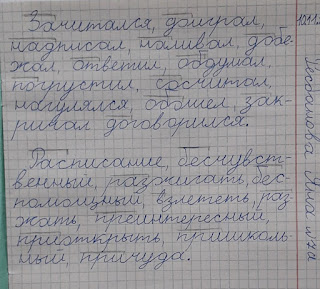 Зачитался, доиграл,
надписал, наливал, добе-
жал, ответил, обдумал,
погрустил, сосчитал,
нагулялся, обошел, зак-
ричал договорился.
Расписание, бесчувст-
венный, разжигать, бес-
помощный, взлететь, раз-
жать, преинтересный,
приоткрыть, пришколь-
ный, причуда.